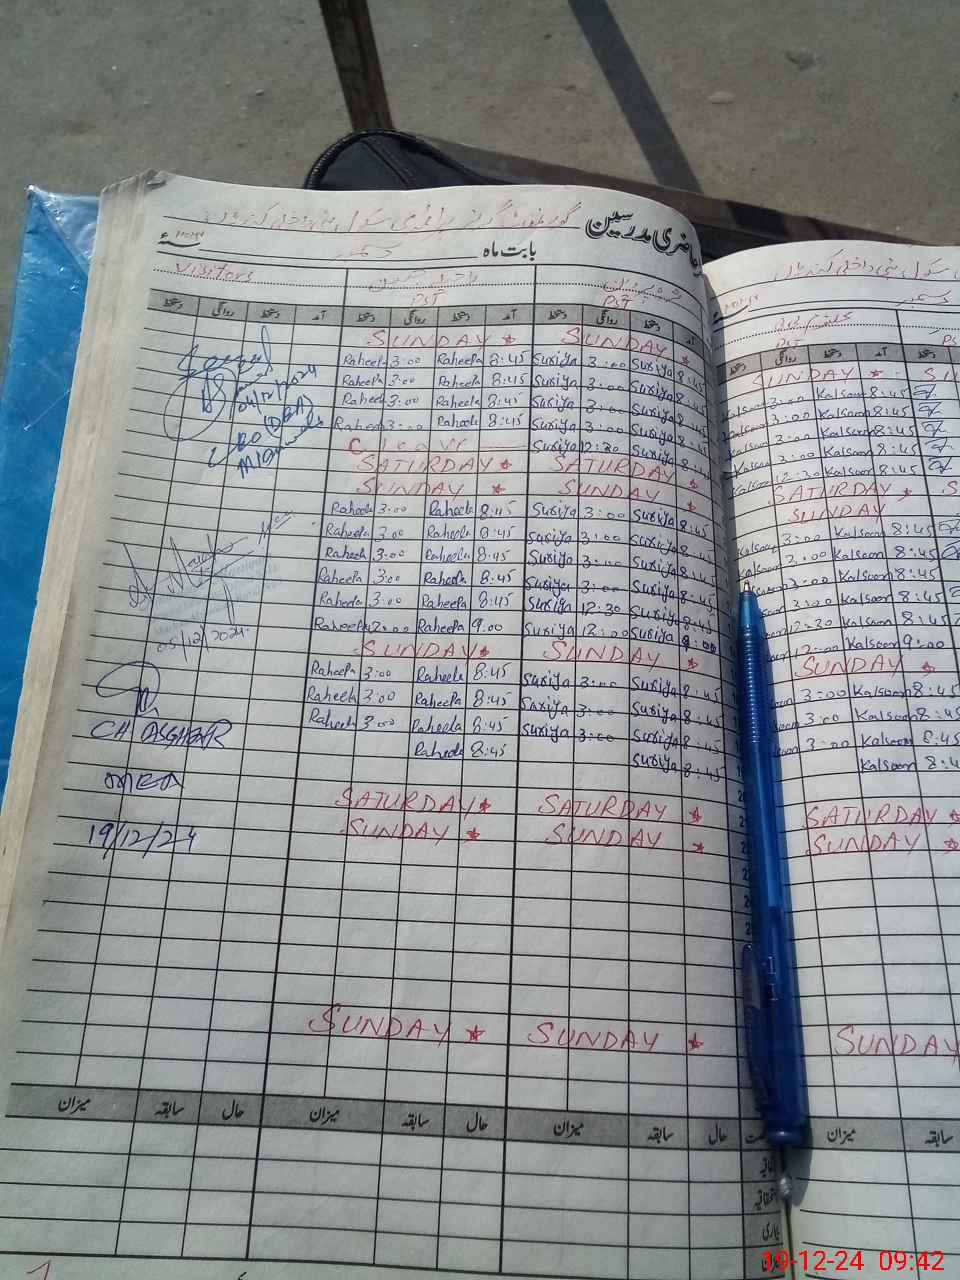 حاضری مدرسین گورنمنٹ گرلز پرائمری سکول
بابت ماہ دسمبر
Visitors
PST PST PST
دستخط روانگی دستخط آمد دستخط روانگی دستخط آمد دستخط روانگی دستخط آمد
SUNDAY SUNDAY SUNDAY
Raheela 3:00 Raheela 8:45 Suriya 3:00 Suriya 8:45 Kalsoom 3:00 Kalsoom 8:45
Raheela 3:00 Raheela 8:45 Suriya 3:00 Suriya 8:45 Kalsoom 3:00 Kalsoom 8:45
Raheela 3:00 Raheela 8:45 Suriya 3:00 Suriya 8:45 Kalsoom 3:00 Kalsoom 8:45
Raheela 3:00 Raheela 8:45 Suriya 3:00 Suriya 8:45 Kalsoom 3:00 Kalsoom 8:45
C. Leave Suriya 12:30 Suriya 8:45 Kalsoom 12:30 Kalsoom 8:45
SATURDAY SATURDAY SATURDAY
SUNDAY SUNDAY SUNDAY
Raheela 3:00 Raheela 8:45 Suriya 3:00 Suriya 8:45 Kalsoom 3:00 Kalsoom 8:45
Raheela 3:00 Raheela 8:45 Suriya 3:00 Suriya 8:45 Kalsoom 3:00 Kalsoom 8:45
Raheela 3:00 Raheela 8:45 Suriya 3:00 Suriya 8:45 Kalsoom 3:00 Kalsoom 8:45
Raheela 3:00 Raheela 8:45 Suriya 3:00 Suriya 8:45 3:00 Kalsoom 8:45
Raheela 3:00 Raheela 8:45 Suriya 12:30 Suriya 8:45 12:30 Kalsoom 8:45
Raheela 12:00 Raheela 9:00 Suriya 12:00 Suriya 9:00 12:00 Kalsoom 9:00
SUNDAY SUNDAY SUNDAY
Raheela 3:00 Raheela 8:45 Suriya 3:00 Suriya 8:45 3:00 Kalsoom 8:45
Raheela 3:00 Raheela 8:45 Suriya 3:00 Suriya 8:45 3:00 Kalsoom 8:45
Raheela 3:00 Raheela 8:45 Suriya 3:00 Suriya 8:45 3:00 Kalsoom 8:45
Raheela 8:45 Suriya 8:45 Kalsoom 8:4
SATURDAY SATURDAY SATURDAY
SUNDAY SUNDAY SUNDAY
SUNDAY SUNDAY SUNDAY
04/12/2024
05/12/2024
CH ASGHAR
MEA
19/12/24
میزان سابقہ حال میزان سابقہ حال میزان سابقہ حال میزان سابقہ
19-12-24 09:42